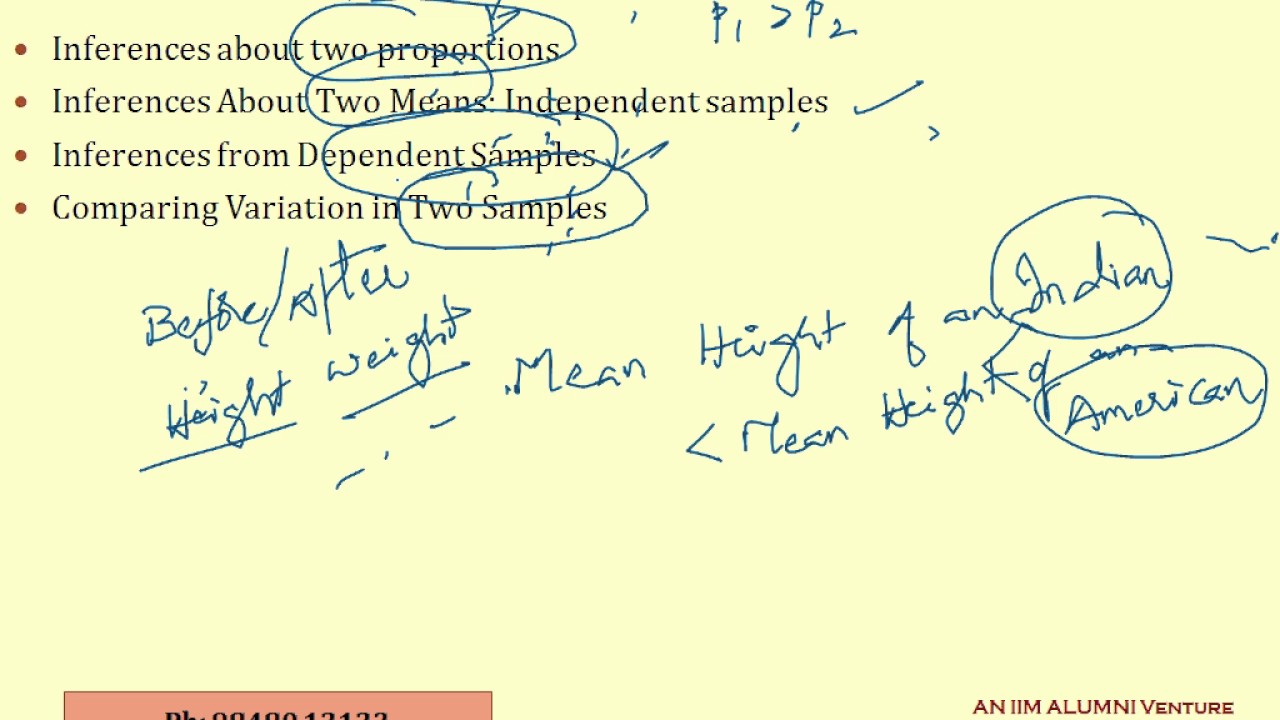 P1 > P2
• Inferences about two proportions
• Inferences About Two Means: Independent samples
• Inferences from Dependent Samples
• Comparing Variation in Two Samples
Before/After
Height weight
Mean Height of an Indian
< Mean Height of an American
AN IIM ALUMNI VENTURE